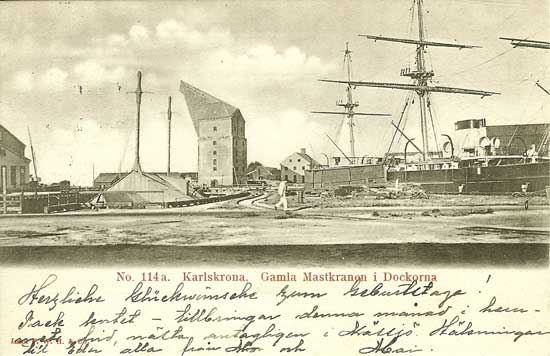 No. 114a. Karlskrona. Gamla Mastkranen i Dockorna
Herzliche Glückwünsche zum Geburtstage!
Tack bref - tillbringar denna månad i
nästa antagligen i Nässjö. Hälsningar
till Eder alla från och Mai.